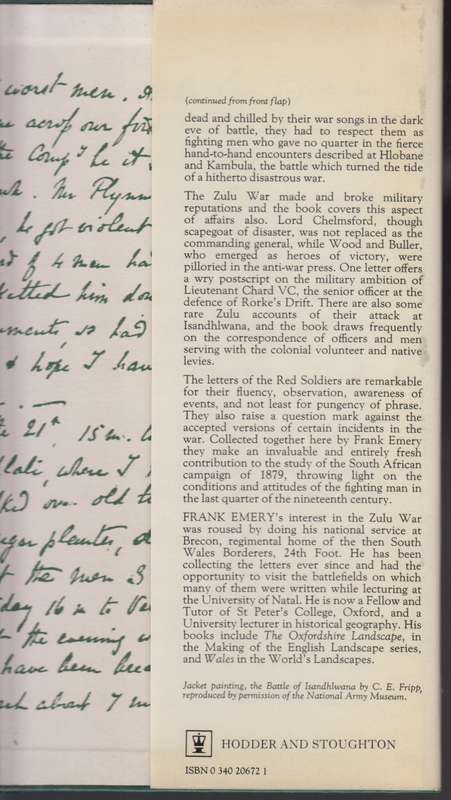 worst men.
our
the Comp^y he it
Mr Flynn
he got violent
of 4 men ha
him dow
had
& hope I hav
21st, 15 m.
where I
old
planter,
the men I
day 16 m to
the evening
have been
about 7 m
(continued from front flap)
dead and chilled by their war songs in the dark
eve of battle, they had to respect them as
fighting men who gave no quarter in the fierce
hand-to-hand encounters described at Hlobane
and Kambula, the battle which turned the tide
of a hitherto disastrous war.
The Zulu War made and broke military
reputations and the book covers this aspect
of affairs also. Lord Chelmsford, though
scapegoat of disaster, was not replaced as the
commanding general, while Wood and Buller,
who emerged as heroes of victory, were
pilloried in the anti-war press. One letter offers
a wry postscript on the military ambition of
Lieutenant Chard VC, the senior officer at the
defence of Rorke's Drift. There are also some
rare Zulu accounts of their attack at
Isandhlwana, and the book draws frequently
on the correspondence of officers and men
serving with the colonial volunteer and native
levies.
The letters of the Red Soldiers are remarkable
for their fluency, observation, awareness of
events, and not least for pungency of phrase.
They also raise a question mark against the
accepted versions of certain incidents in the
war. Collected together here by Frank Emery
they make an invaluable and entirely fresh
contribution to the study of the South African
campaign of 1879, throwing light on the
conditions and attitudes of the fighting man in
the last quarter of the nineteenth century.
FRANK EMERY's interest in the Zulu War
was roused by doing his national service at
Brecon, regimental home of the then South
Wales Borderers, 24th Foot. He has been
collecting the letters ever since and had the
opportunity to visit the battlefields on which
many of them were written while lecturing at
the University of Natal. He is now a Fellow and
Tutor of St Peter's College, Oxford, and a
University lecturer in historical geography. His
books include The Oxfordshire Landscape, in
the Making of the English Landscape series,
and Wales in the World's Landscapes.
Jacket painting, the Battle of Isandhlwana by C. E. Fripp,
reproduced by permission of the National Army Museum.
HODDER AND STOUGHTON
ISBN 0 340 20672 1